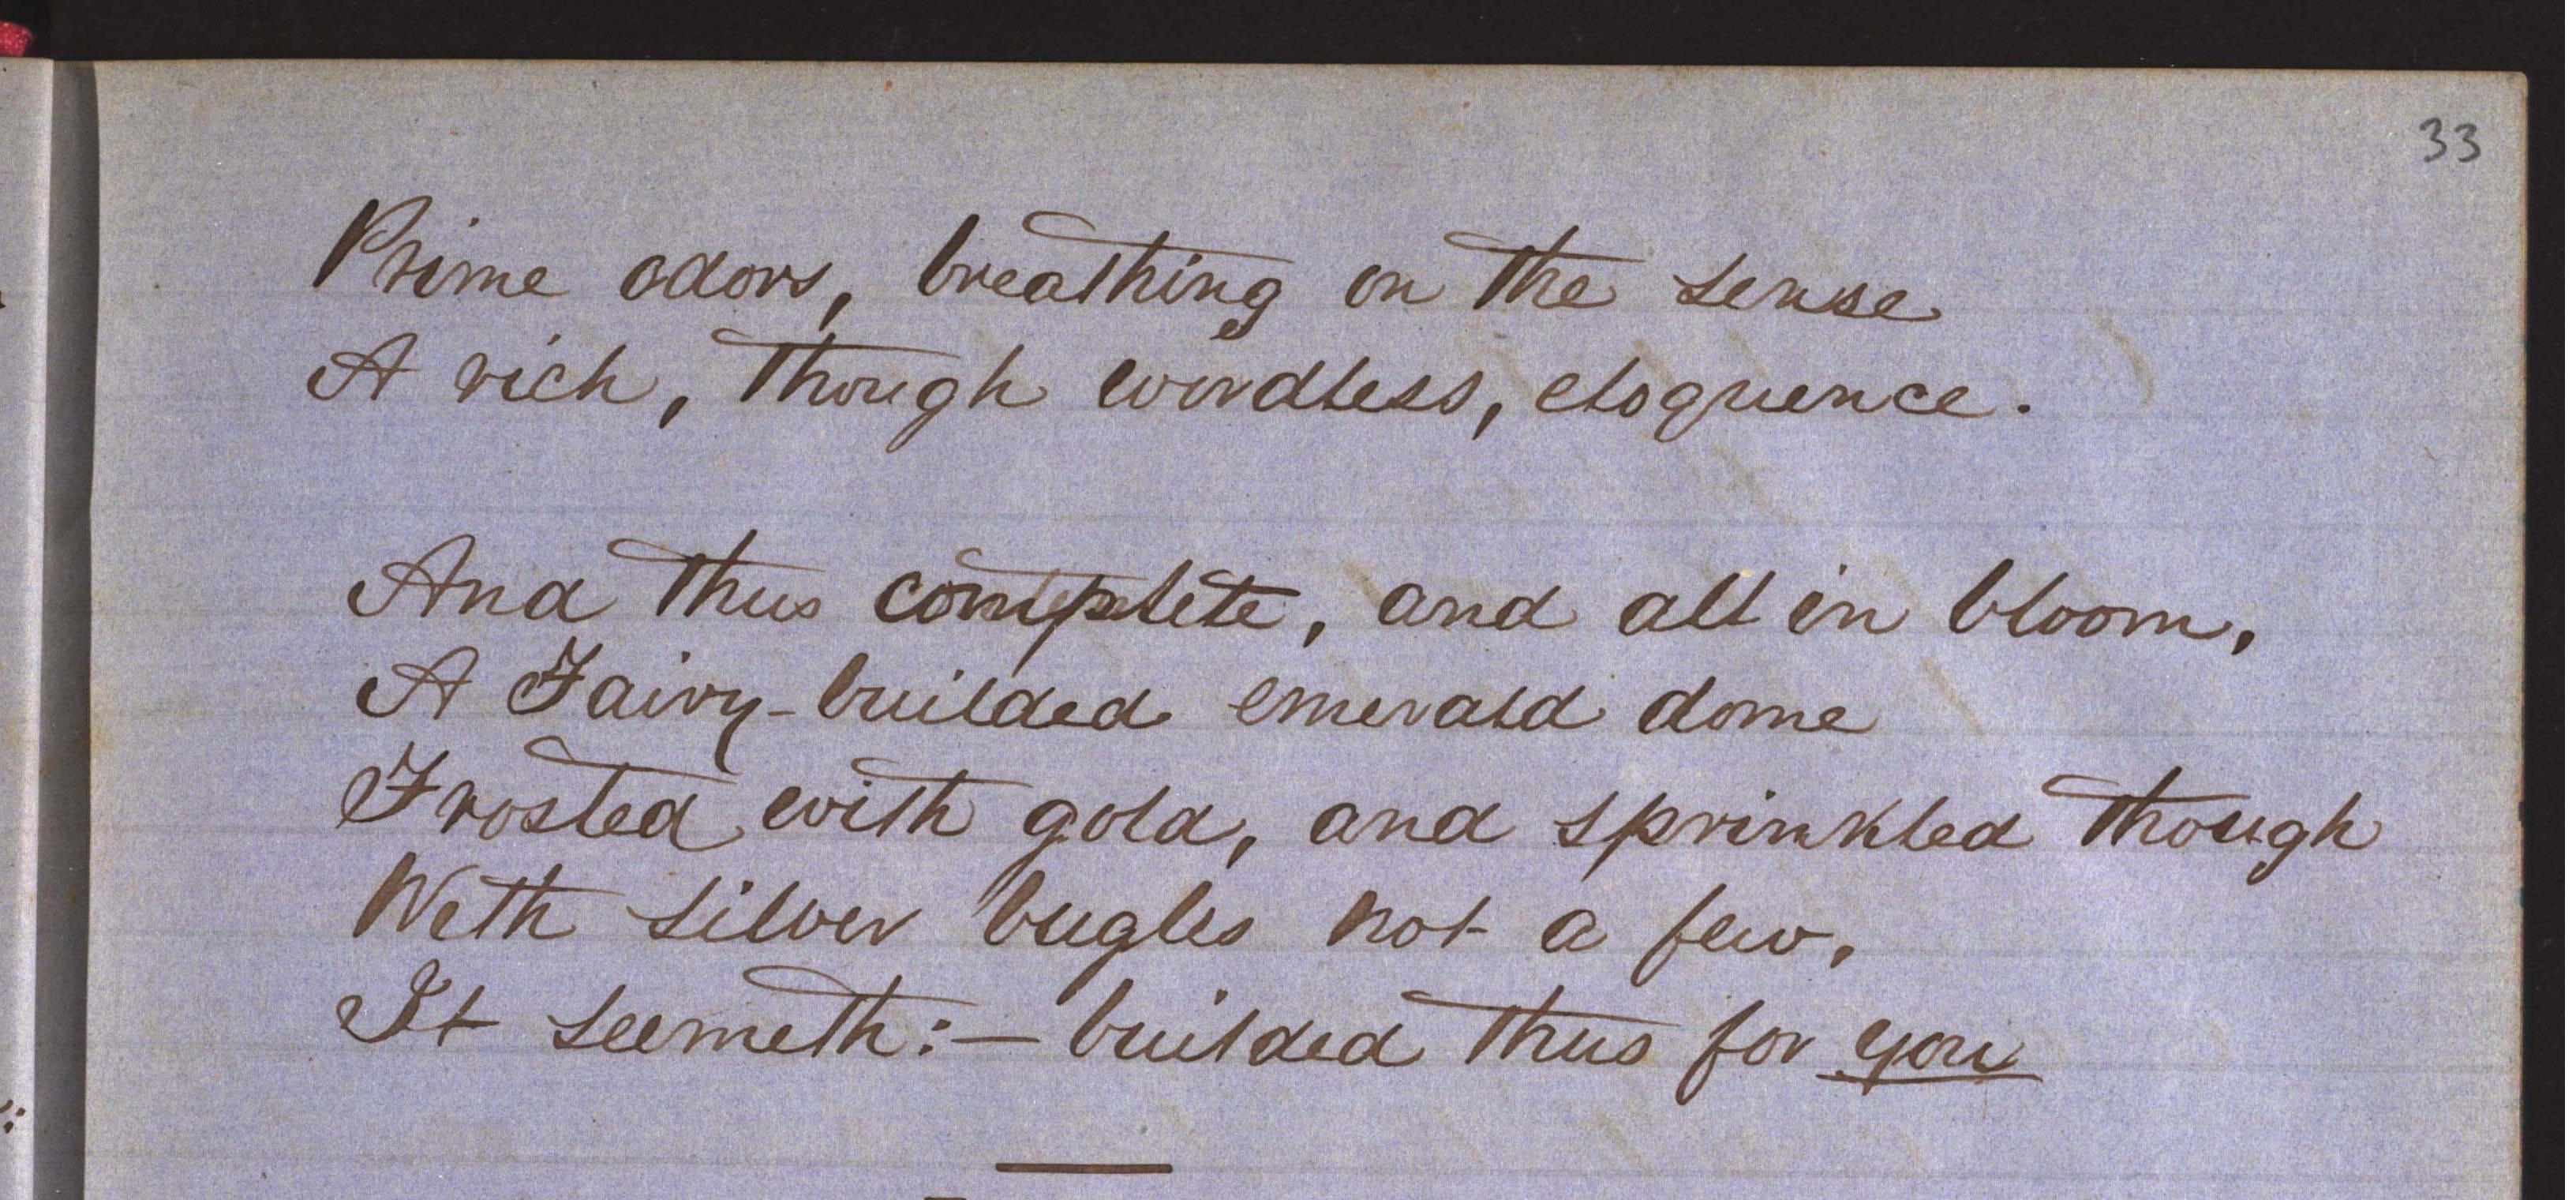 33
Prime odors, breathing on the sense
A rich, though wordless, eloquence.
And thus complete, and all in bloom,
A Fairy-builded emerald dome
Frosted with gold, and sprinkled though
With silver bugles not a few,
It seemeth:— builded thus for you